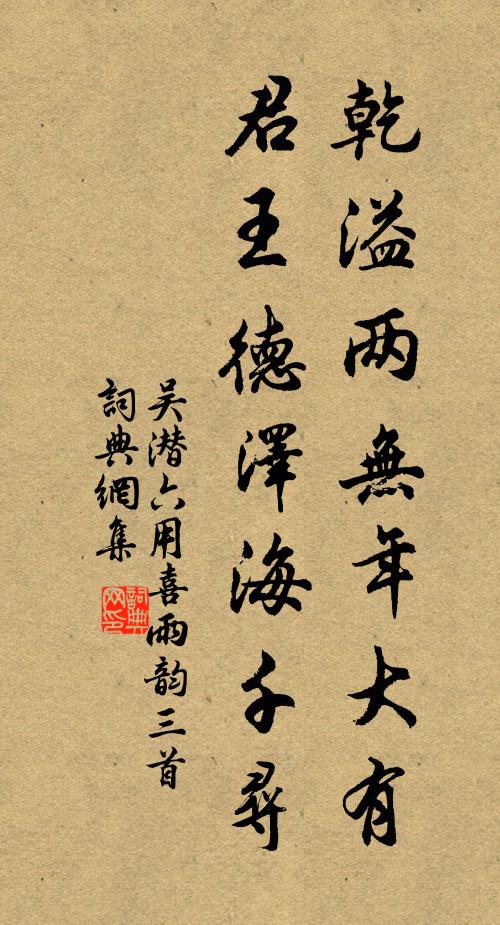 乾溢两無年大有
君王德澤海千尋
吴潜六用喜雨韵三首
詞典網集
詞典
网印